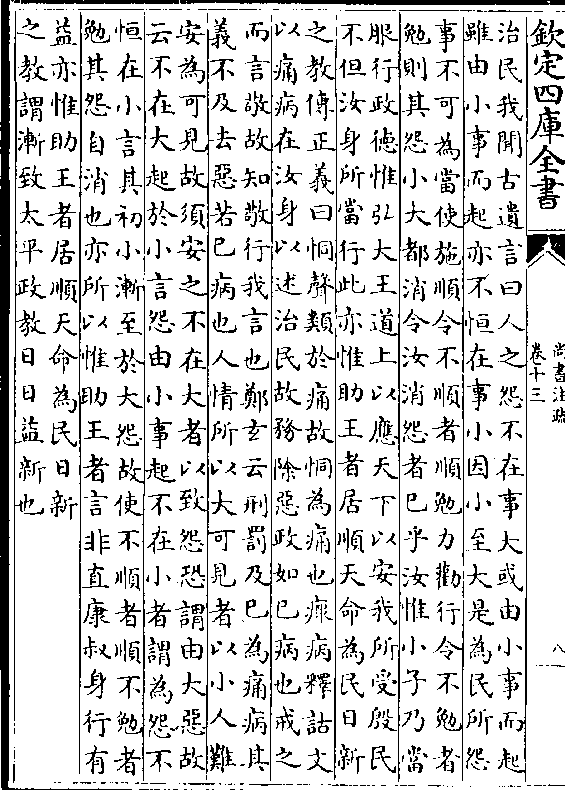 欽定四庫全書
尚書注疏
卷十三
八
治民我聞古遺言曰人之怨不在事大或由小事而起
雖由小事而起亦不恒在事小因小至大是為民所怨
事不可為當使施順令不順者順勉力勸行令不勉者
勉則其怨小大都消令汝消怨者已乎汝惟小子乃當
服行政德惟弘大王道上以應天下以安我所受殷民
不但汝身所當行此亦惟助王者居順天命為民日新
之教傳正義曰恫聲類於痛故恫為痛也瘝病釋詁文
以痛病在汝身以述治民故務除惡政如已病也戒之
而言敬故知敬行我言也鄭玄云刑罰及已為痛病其
義不及去惡若已病也人情所以大可見者以小人難
安為可見故須安之不在大者以致怨恐謂由大惡故
云不在大起於小言怨由小事起不在小者謂為怨不
恒在小言其初小漸至於大怨故使不順者順不勉者
勉其怨自消也亦所以惟助王者言非直康叔身行有
益亦惟助王者居順天命為民日新
之教謂漸致太平政教日日益新也